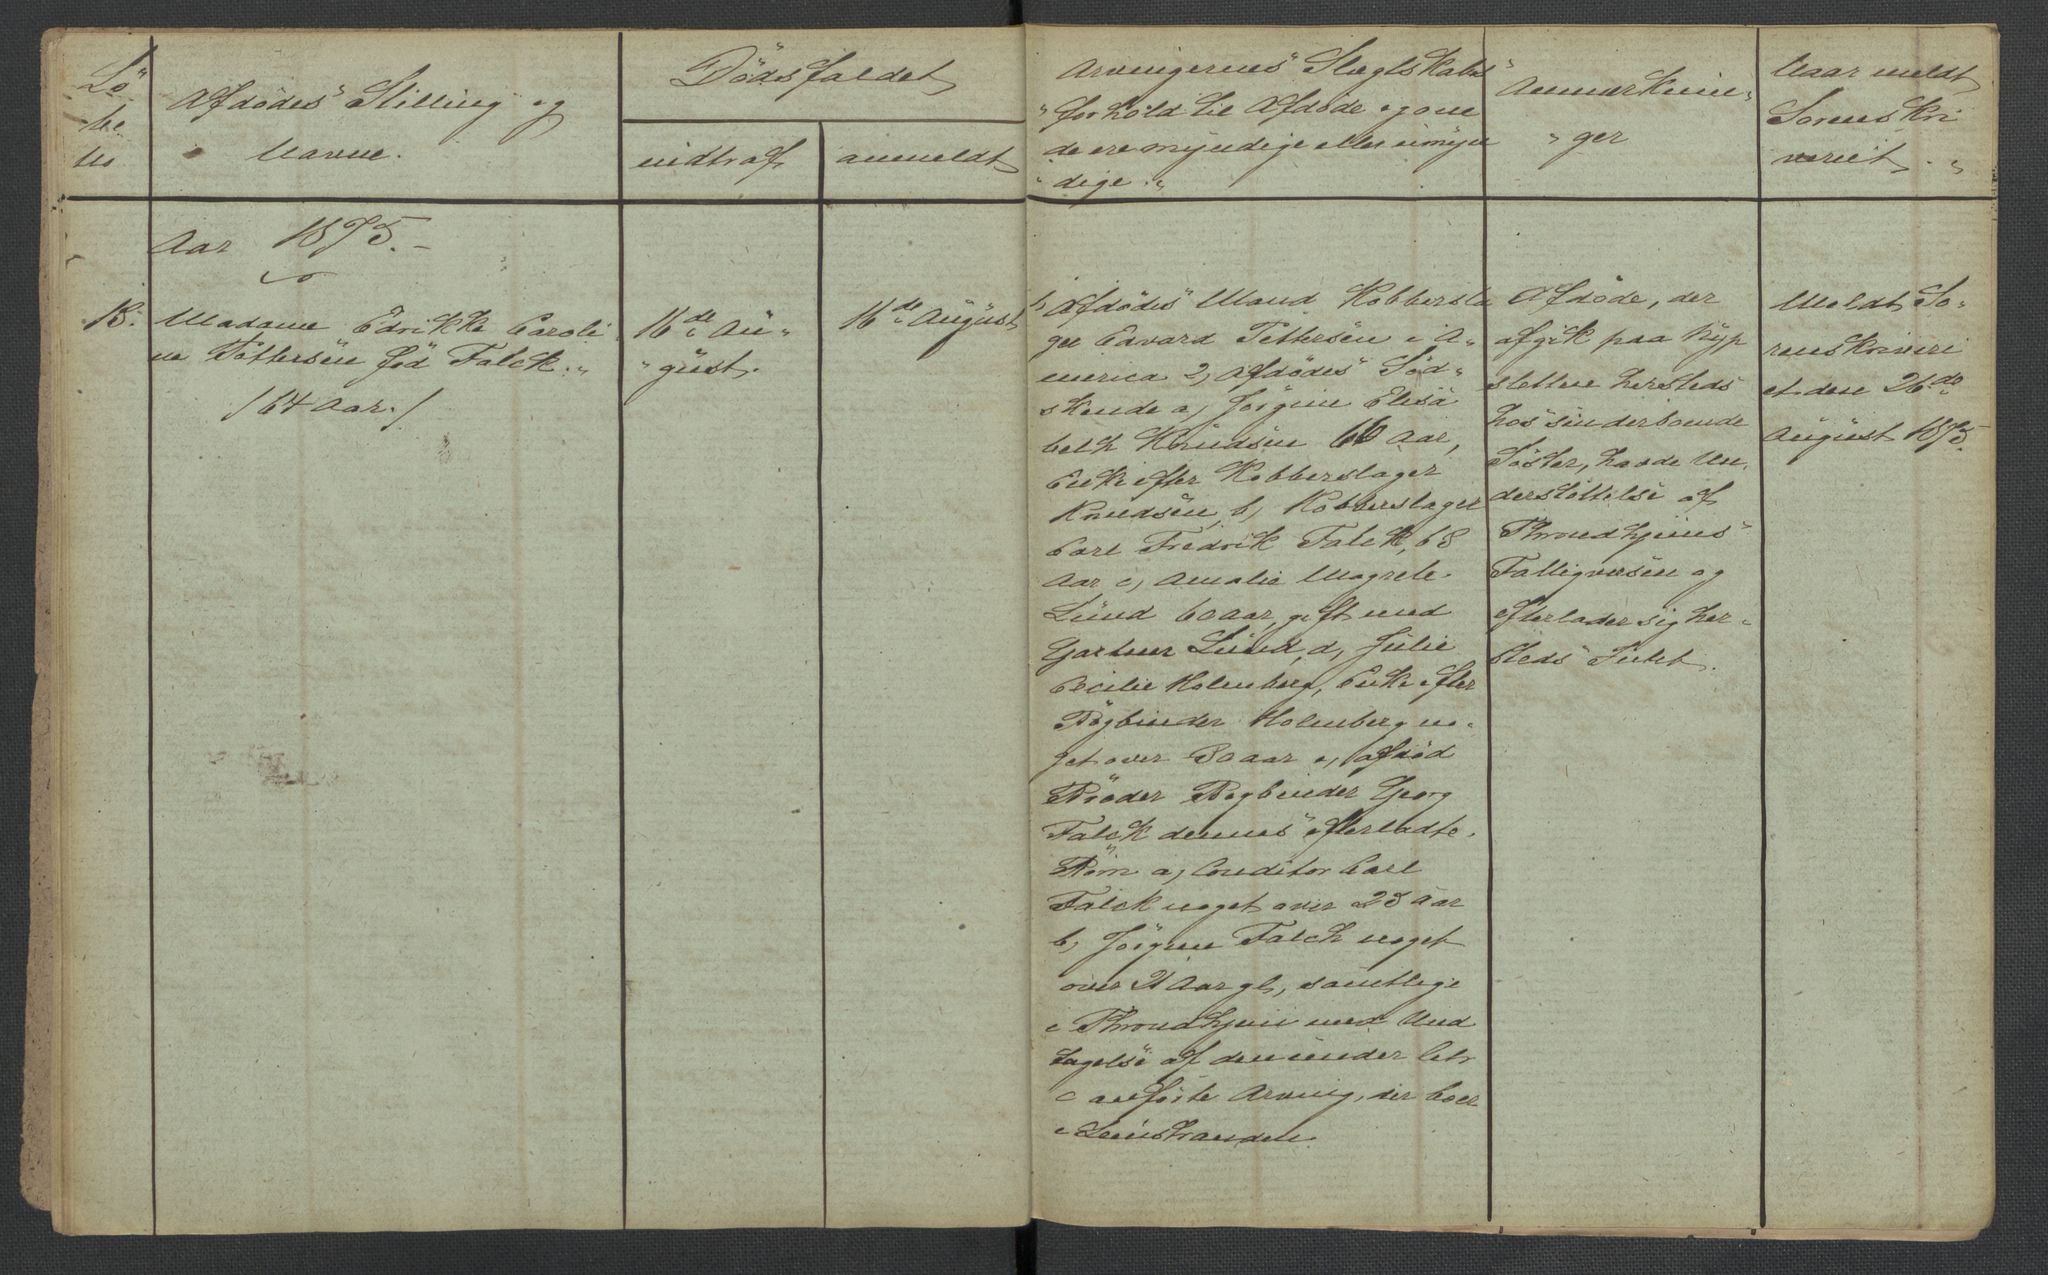 Lö
be
No
Afdödes Stilling og
Navne.
Dödsfaldet
indtraf
anmeldt
Arvingernes Slægtskabs
"forhold til Afdöde og om
de ere myndige eller umyn
"dige."
Anmærknin"
"ger
Naar meldt
Sorenskri
veriet."
Aar 1875.-
18.
Madame Edrikke Caroli
ne Pettersen föd Falck."
/64 Aar./
16de Au"
"gust.
16de August
1, Afdödes Mand Kobbersla
ger Edvard Pettersen i A"
merica 2, Afdödes Söd"
skende a, Jörgine Elisa
beth Knudsen 66 Aar,
Enke efter Kobberslager
Knudsen, b, Kobberslager
Carl Fredrik Falck, 68
Aar c, Amalie Magrete
Lund 60 aar, gift med
Gartner Lund, d, Julie
Cecilie Holmberg, Enke efter
Bogbinder Holmberg no-
get over 50 aar e, afdöd
Broder Bogbinder Georg
Falck dennes efterladte
Börn a, Conditor Carl
Falck noget over 25 Aar
b, Jörgen Falck noget
over 21 Aar gl, samtlige
i Throndhjem med Und
tagelse af den under litr
c anförte Arving, der boer
i Leinstranden
Afdöde, der
afgik paa Ryp
sletten hersteds
hos sin derboende
Söster, havde Un"
derstöttelse af
Throndhjems
Fattigvæsen og
efterlader sig her-
steds Intet.
Meldt So-
renskriveri
et den 26de
August 1875.